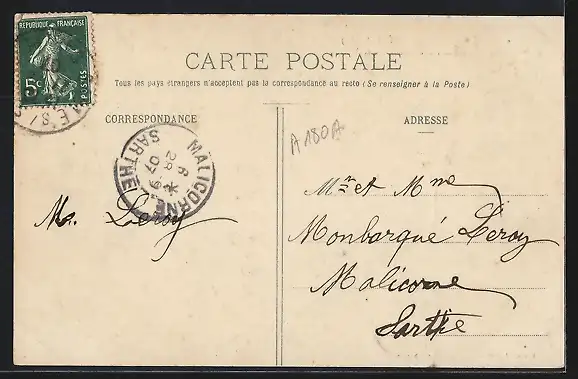 RÉPUBLIQUE FRANÇAISE
5c
POSTES
CARTE POSTALE
Tous les pays étrangers n'acceptent pas la correspondance au recto (Se renseigner à la Poste)
CORRESPONDANCE
ADRESSE
A180A
MALICORNE
6
28
07
SARTHE
Mr et Mme
Mr. Leroy
Monbarqué Leroy
Malicorne
Sarthe